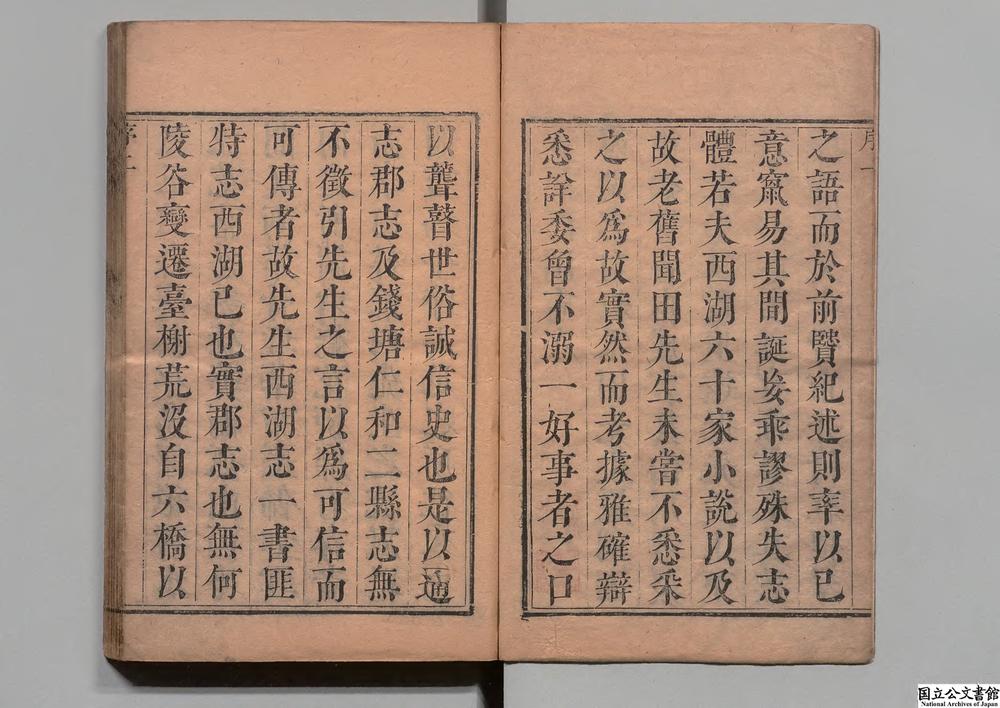 之語而於前賢紀述則率以已
意竄易其間誕妄乖謬殊失志
體若夫西湖六十家小說以及
故老舊聞田先生未嘗不悉采
之以爲故實然而考據雅確辯
悉詳委曾不溺一好事者之口
以聾瞽世俗誠信史也是以通
志郡志及錢塘仁和二縣志無
不徵引先生之言以爲可信而
可傳者故先生西湖志一書匪
特志西湖已也實郡志也無何
陵谷變遷臺榭荒沒自六橋以
国立公文書館
National Archives of Japan